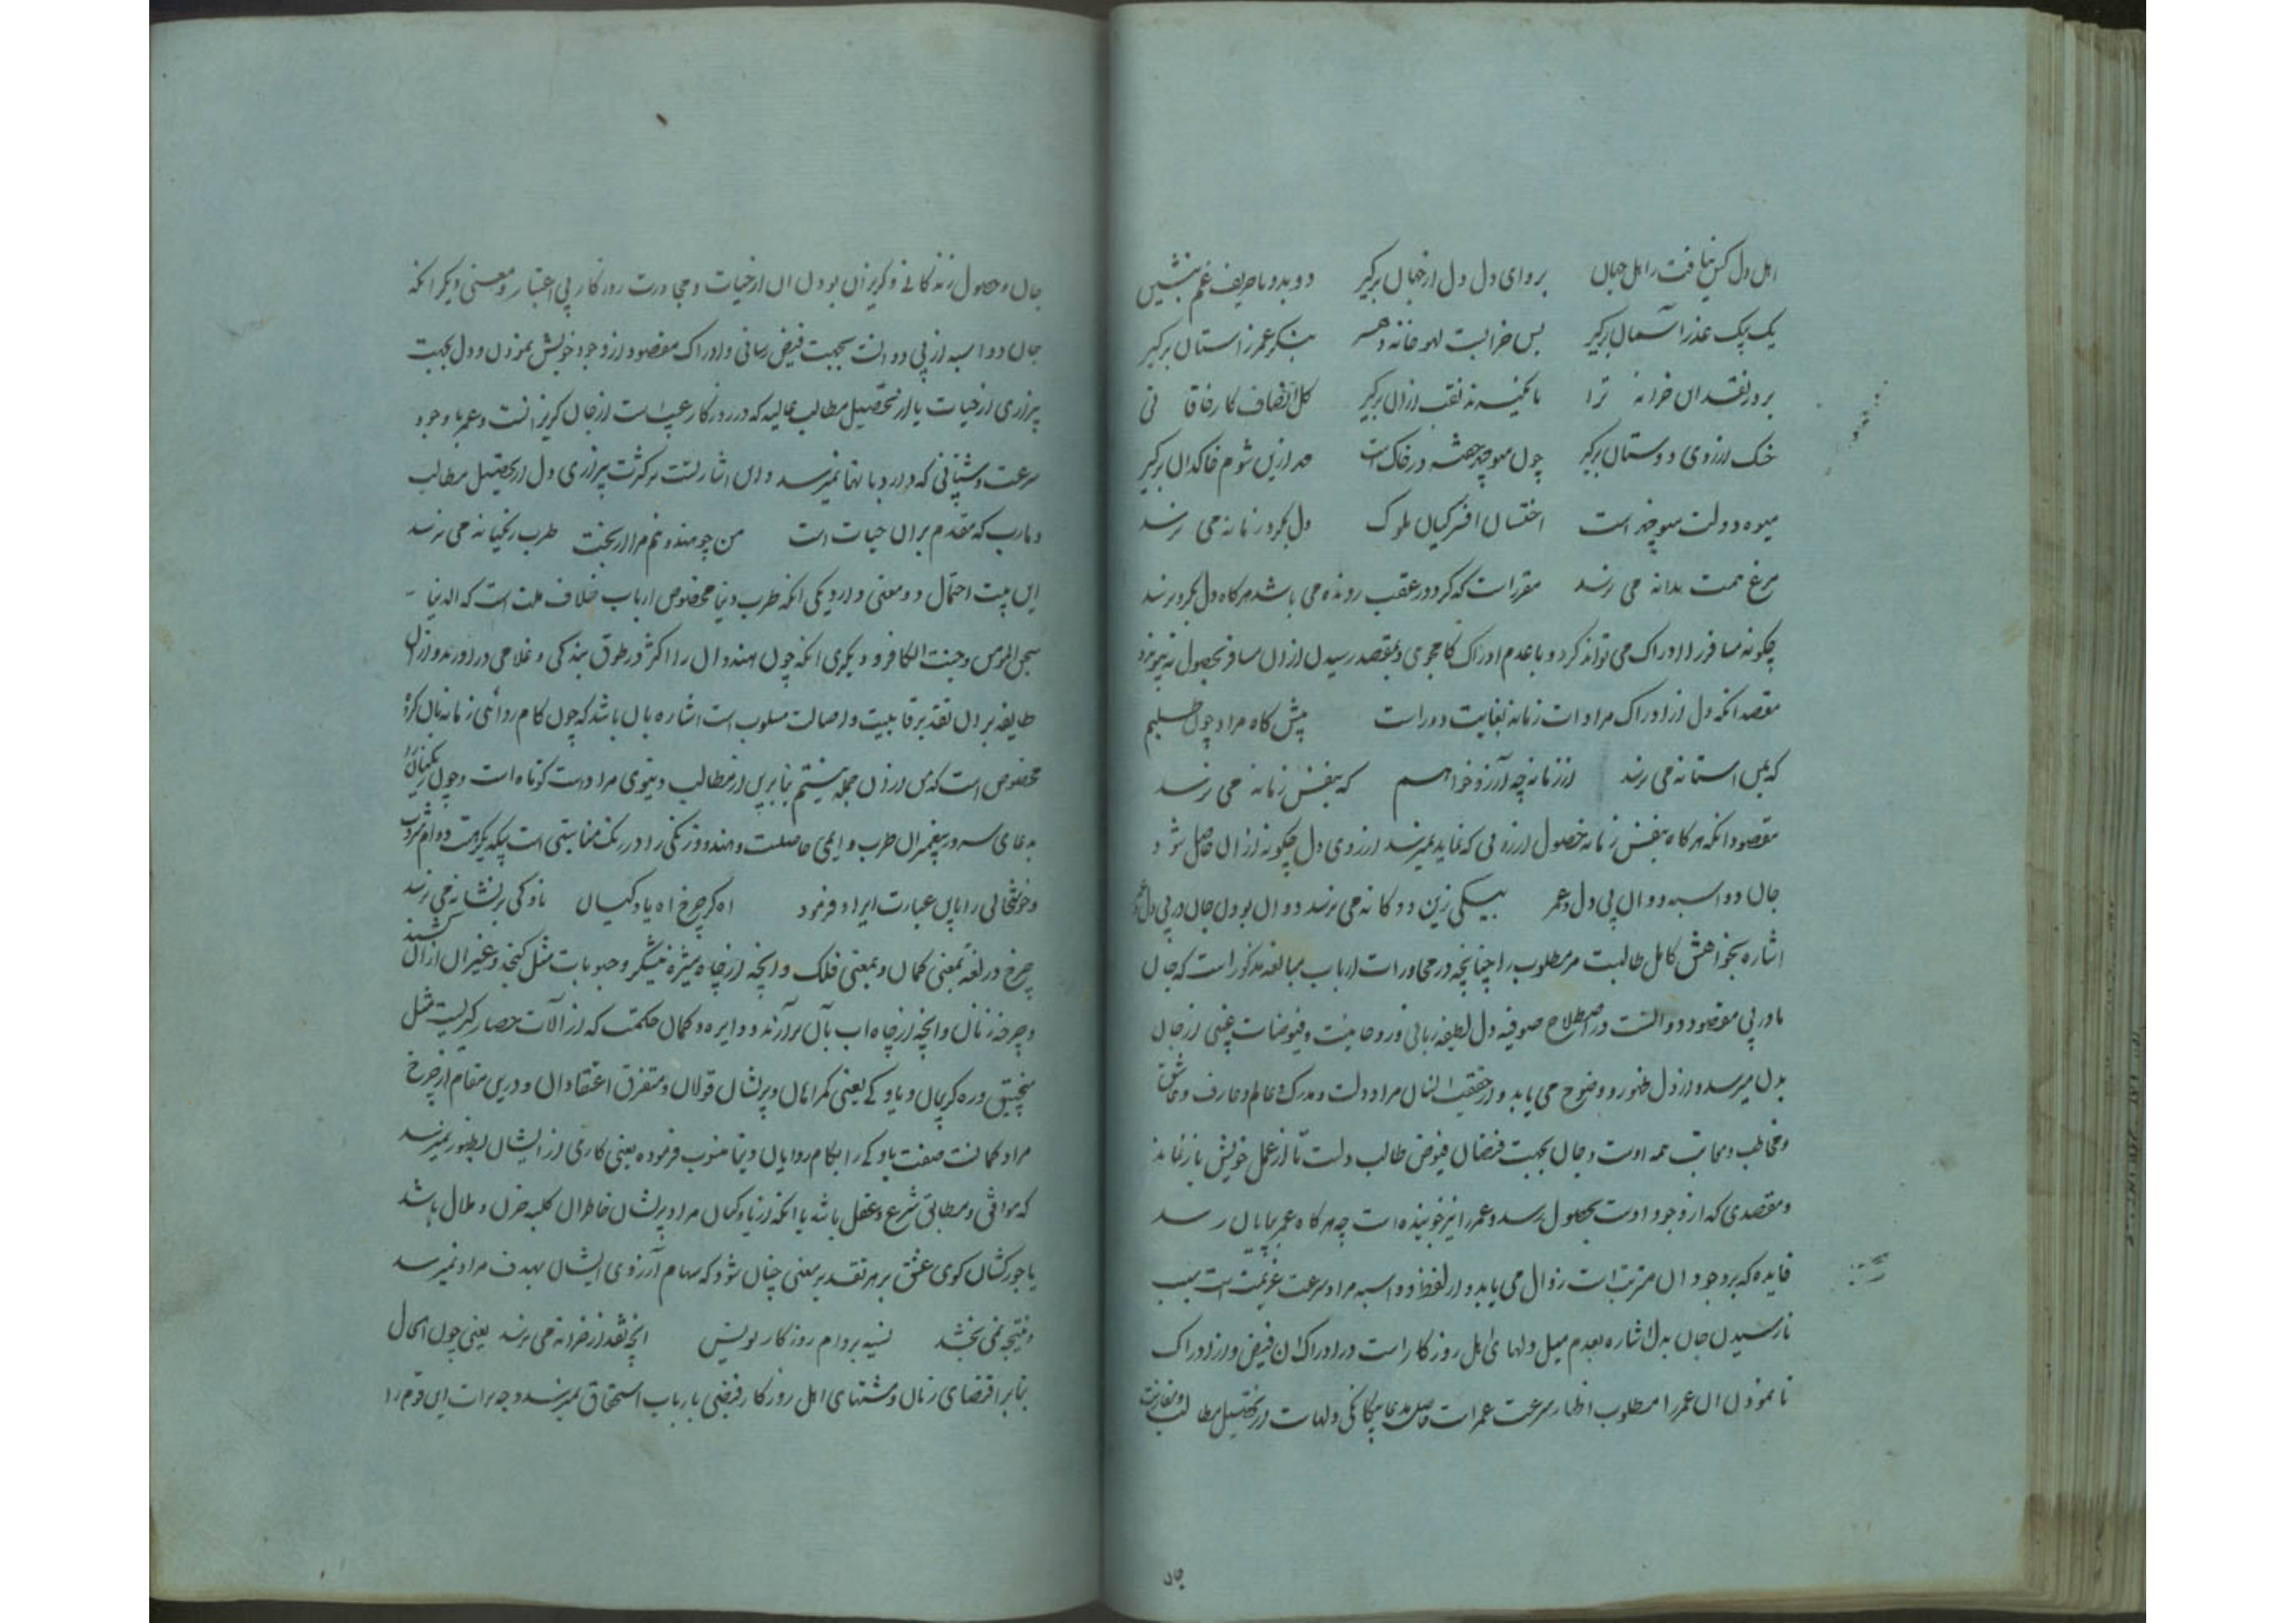 اهل دل کس نیافت ز اهل جهان برو ای دل دل از جهان برگیر دو بدو با حریف غم بنشین
یک بیک عذر آسمان برگیر بس خرابست لهو خانه دهر بشکر عمر ز آستان برگیر
بر در نقد این خزانه ترا با کلید نقب از آن برگیر کل انصاف کار فاقا نی
خنک آرزوی دوستان برگیر چون میوه در خاک است هم ازین شوم خاکدان برگیر
میوه دولت منوچهر است اخستان افسر کیان ملوک دل بگرد زمانه می نرسد
مرغ همت بدانه می نرسد مقرر است که گرد در عقب رونده می باشد هرگاه دل بگرد نرسد
چگونه مسافر را ادراک می تواند کرد و با عدم ادراک کامجوی و بمقصد رسیدن از آن مسافر بحصول نه پیوندد
مقصد آنکه دل از ادراک مرادات زمانه بغایت دور است پیش گاه مراد چون طلبم
که بس آستانه می نرسد از زمانه چه آرزو خواهم که بنفس زمانه می نرسد
مقصود آنکه هرگاه بنفس زمانه حصول آرزوئی که نماید نمیرسد آرزوی دل چگونه از آن حاصل شود
جان دو اسبه دوان پی دل و عمر بیکی زین دوگانه می نرسد دوان بودن جان در پی دل و عمر
اشاره بخواهش کامل طالبست مر مطلوب را چنانچه در محاورات ارباب مبالغه مذکور است که جان
ما در پی مقصود دوانست در اصطلاح صوفیه دل لطیفه ربانی و روحانیت و فیوضات غیبی از جان
بدل میرسد و از دل ظهور و وضوح می یابد و در حقیقت انسان مراد دلست و مدرک و عالم و عارف و عاشق
و مخاطب و معاتب همه اوست و جان بجهت فیضان فیوض طالب دلست تا از عمل خویش باز نماند
و مقصدی که از وجود اوست بحصول رسد و عمر را نیز خوبنده است چه هرگاه عمر بپایان رسد
فایده که بر وجود آن مترتب است زوال می یابد و از لفظ دو اسبه مراد سرعت عزیمت است سبب
نارسیدن جان بدل اشاره بعدم میل دلهای اهل روزگار است در ادراک آن فیض و از ادراک
نا نمودن آن عمر را مطلوب اظهار سرعت عمر است حاصل مدعا بیگانگی دلهاست از تحصیل مطالب و مفارقت
جان
جان و حصول زندگانی و گریزان بودن آن از حیات و مجاورت روزگار بی اعتبار و معنی دیگر آنکه
جان دو اسبه از پی دوانست بجهت فیض رسانی و ادراک مقصود از وجود خویش نمودن و دل بجهت
بیزاری از حیات یا از تحصیل مطالب عالیه که در روزگار عبث است از جان گریزانست و عمر با وجود
سرعت و شتابی که دارد بانها نمیرسد و این اشارتست بر کثرت بیزاری دل از تحصیل مطالب
و مآرب که مقدم بران حیات است من چو هندو نیم مرا از بخت طرب زنگیانه می نرسد
این بیت احتمال دو معنی دارد یکی آنکه طرب دنیا مخصوص ارباب خلاف ملت است که الدنیا
سجن المومن و جنت الکافر و دیگری آنکه چون هندوان را اکثر در طوق بندگی و غلامی در آورند و از آن
طایفه بر آن تقدیر قابلیت و اصالت مسلوب است اشاره بان باشد که چون کام روائی زمانه بان گروه
مخصوص است که من از آن جمله نیستم بنابرین از مطالب دنیوی مرا دست کوتاه است و چون زنگیان را
بدعای سرور پیغمبران طرب دایمی حاصلست و هندو و زنگی را در رنگ مناسبتی است بیکدیگر
و خوشحالی را باین عبارت ایراد فرمود اه کز چرخ اه یاوگیان ناوکی بر نشانه می نرسد
چرخ در لغة بمعنی کمان و بمعنی فلک و آنچه از چاه شیره نیشکر و حبوبات مثل کنجد و غیر آن از آن کشند
و چرخه زنان و آنچه از چاه آب بآن برآرند و دایره و کمان حکمت که از آلات حصار گیریست مثل
منجنیق و ره گریبان و یاوگی یعنی گمراهان و پریشان قولان و متفرق اعتقادان و درین مقام از چرخ
مراد کمانست صفت یاوگی را بکام روایان دنیا منسوب فرموده یعنی کاری از ایشان بظهور نمیرسد
که موافق و مطابق شرع و عقل باشد یا آنکه از یاوگیان مراد پریشان خاطران کلبه حزن و ملال باشد
یا جورکشان کوی عشق بر هر تقدیر معنی چنان شود که سهام آرزوی ایشان بهدف مراد نمیرسد
و نتیجه نمی بخشد نسیه بر نام روزگار نویس انچه نقد از خزانه می نرسد یعنی چون الحال
بنابر اقتضای زمان و مشتهای اهل روزگار فیضی بارباب استحقاق نمیرسد وجه برات این قوم را